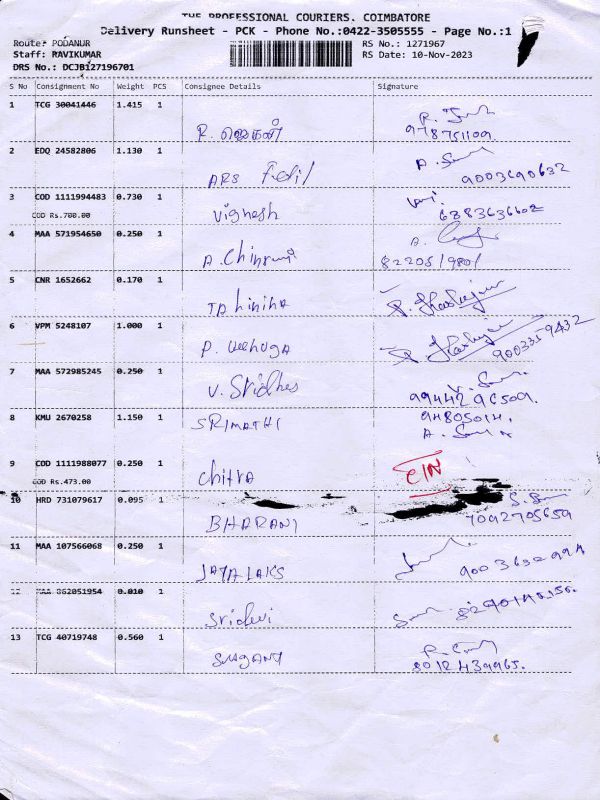 THE PROFESSIONAL COURIERS. COIMBATORE
Delivery Runsheet - PCK - Phone No.:0422-3505555 - Page No.:1
Route: PODANUR RS No.: 1271967
Staff: RAVIKUMAR RS Date: 10-Nov-2023
DRS No.: DCJB127196701
S No Consignment No Weight PCS Consignee Details Signature
1 TCG 30041446 1.415 1
R. 978751109
2 EDQ 24582806 1.130 1
ARS 9003690632
3 COD 1111994483 0.730 1
COD Rs.700.00 Vignesh 6383636602
4 MAA 571954650 0.250 1 A.
A. 8220519801
5 CNR 1652662 0.170 1
6 VPM 5248107 1.000 1
P. 9003359432
7 MAA 572985245 0.250 1
V. V.
9944296509.
8 KMU 2670258 1.150 1
SRIMATHI A.
9 COD 1111988077 0.250 1
COD Rs.473.00 Chitra
10 HRD 731079617 0.095 1 S.
BHARANI 7092705659
11 MAA 107566068 0.250 1
JAYALAKS
12 MAA 862051954 0.010 1
Sridevi
13 TCG 40719748 0.560 1 R.
8012439965.